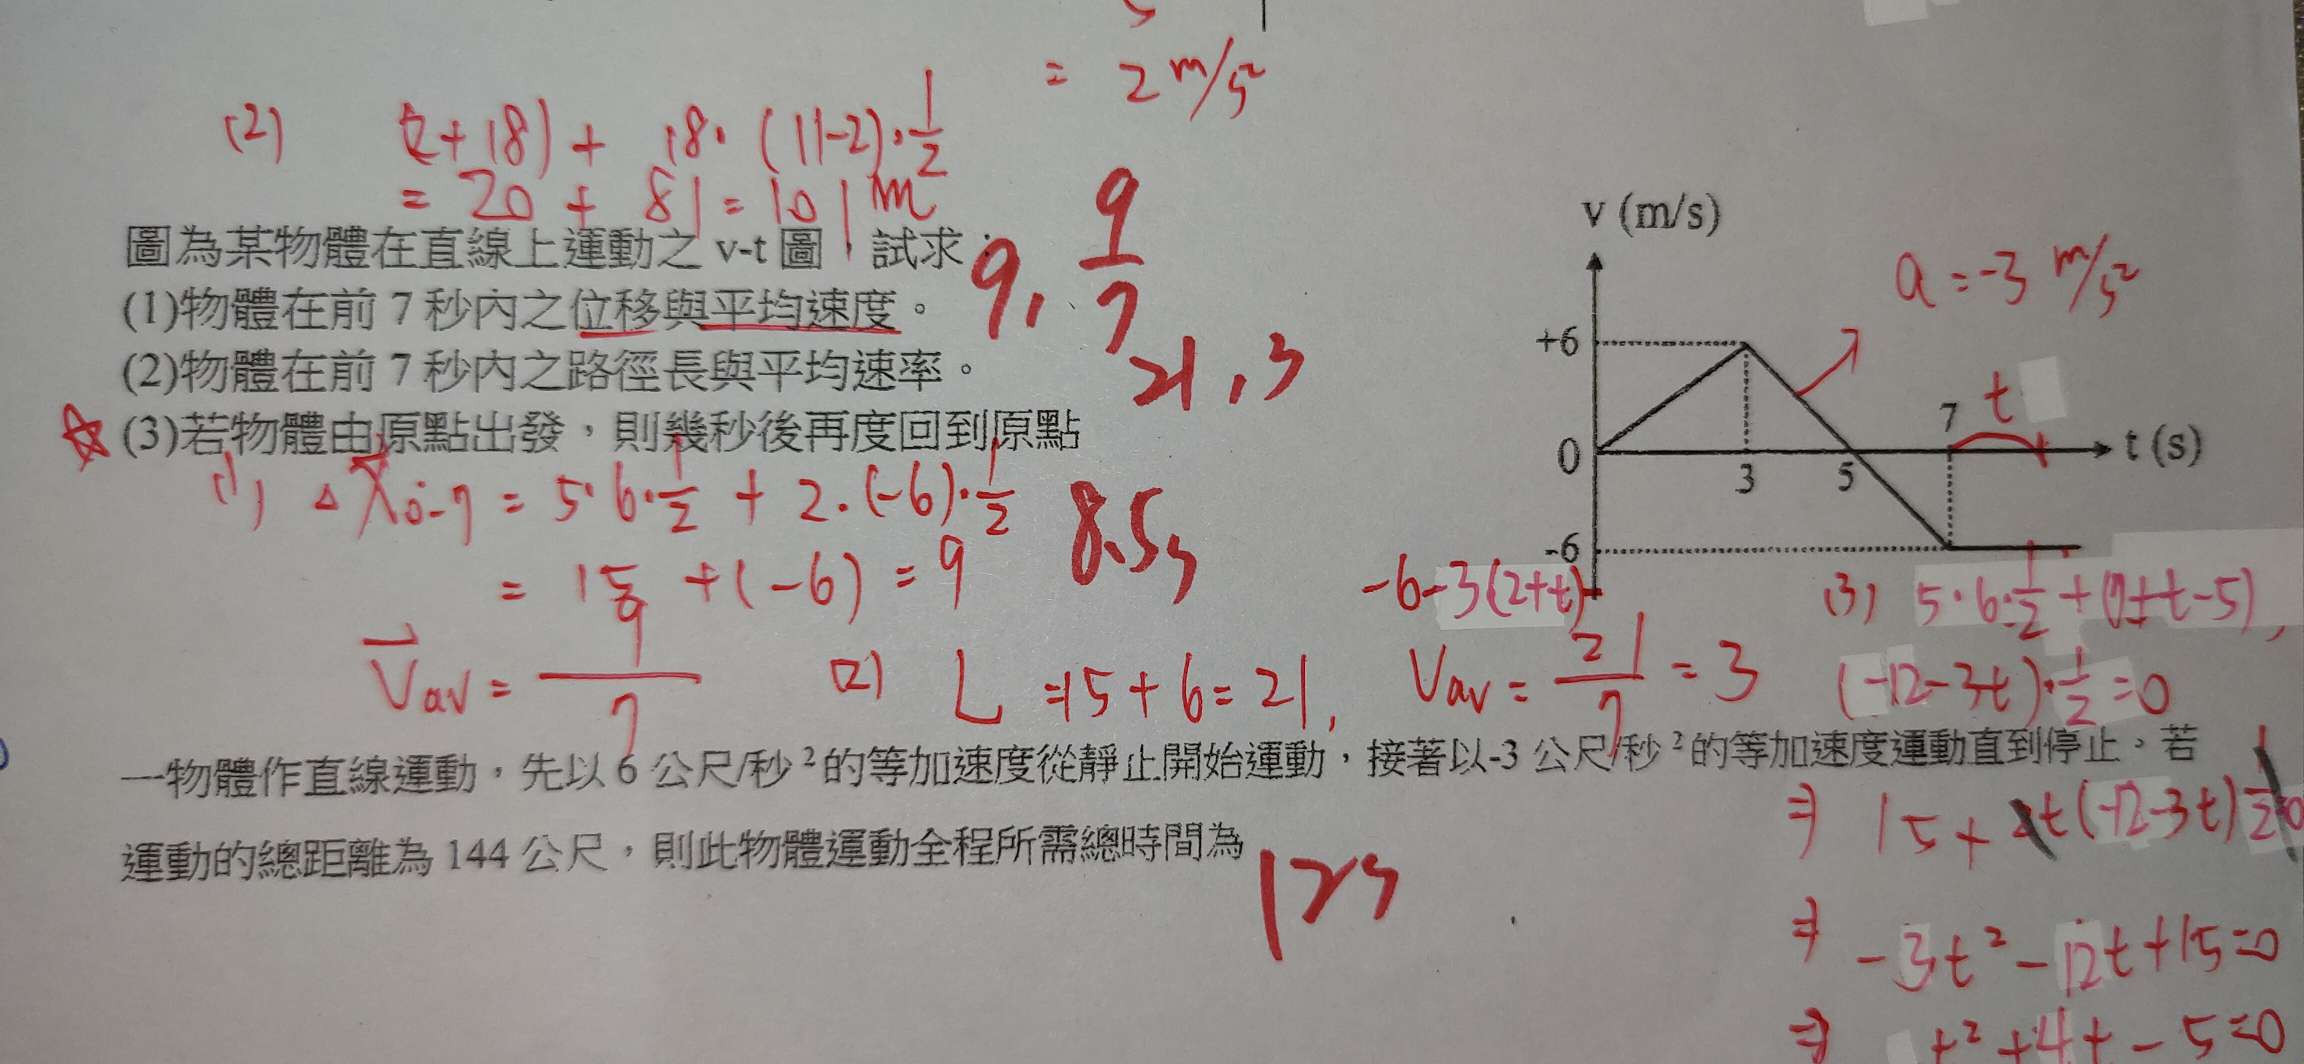 = 2 m/s²
(2) (2+18) + 18·(11-2)·1/2
= 20 + 81 = 101 m
圖為某物體在直線上運動之 v-t 圖，試求：
(1)物體在前 7 秒內之位移與平均速度。 9, 9/7
(2)物體在前 7 秒內之路徑長與平均速率。 21, 3
(3)若物體由原點出發，則幾秒後再度回到原點 8.5s
v (m/s)
a = -3 m/s²
+6
7 t
0 3 5 t (s)
-6
(1) Δx0-7 = 5·6·1/2 + 2·(-6)·1/2
= 15 + (-6) = 9
Vav = 9/7
(2) L = 15 + 6 = 21, Vav = 21/7 = 3
-6-3(2+t)
(3) 5·6·1/2 + (7+t-5)
(-12-3t)·1/2 = 0
一物體作直線運動，先以 6 公尺/秒²的等加速度從靜止開始運動，接著以-3 公尺/秒²的等加速度運動直到停止。若
運動的總距離為 144 公尺，則此物體運動全程所需總時間為 12s
⇒ 15 + t(-12-3t)
⇒ -3t² - 12t + 15 = 0
⇒ t² + 4t - 5 = 0